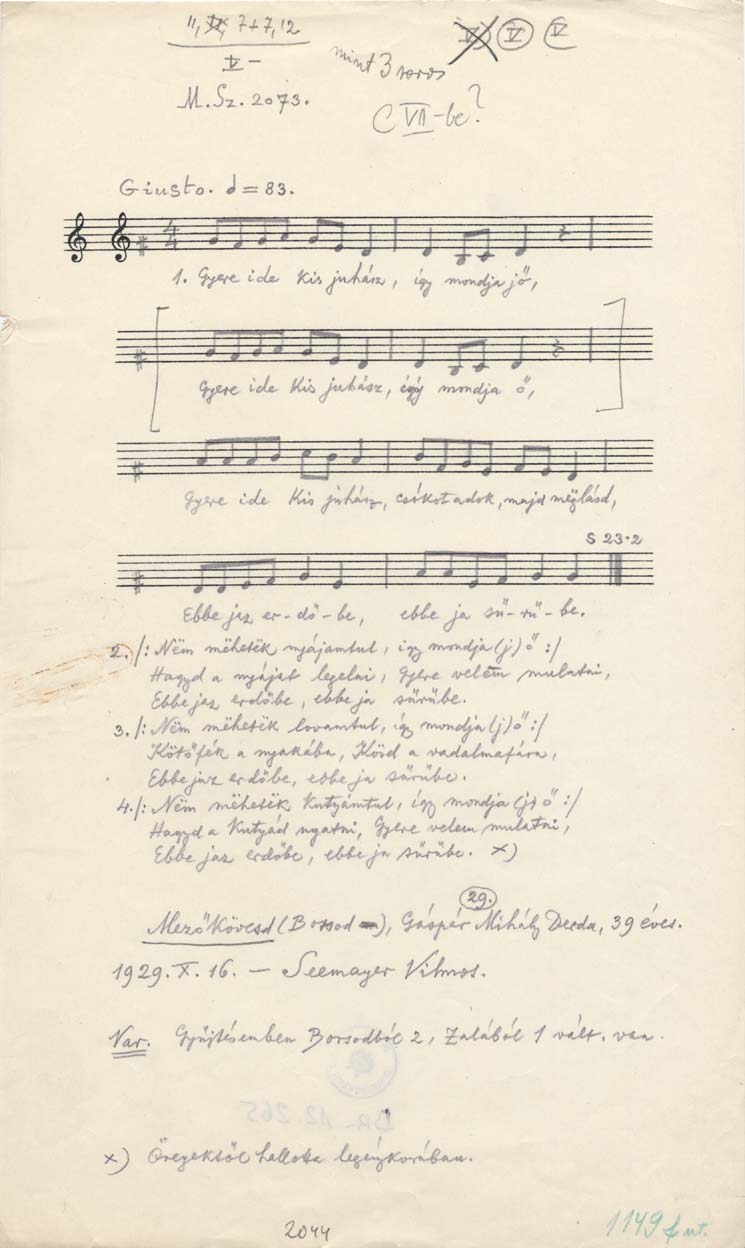 11, 7+7, 12
V V V
V-
mint 3 soros
M. Sz. 2073.
C VII-be?
Giusto. d = 83.
1. Gyere ide kis juhász, így mondja jő,
Gyere ide kis juhász, így mondja ő,
Gyere ide kis juhász, csókot adok, majd mëglásd,
S 23·2
Ebbe jaz er-dő-be, ebbe ja sű-rű-be.
2. /: Nëm mëhetëk nyájamtul, így mondja (j) ő :/
Hagyd a nyájat legelni, Gyere velem mulatni,
Ebbe jaz erdőbe, ebbe ja sűrűbe.
3. /: Nëm mëhetëk lovamtul, így mondja (j) ő :/
Kötőfék a nyakába, Kösd a vadalmafára,
Ebbe jaz erdőbe, ebbe ja sűrűbe.
4. /: Nëm mëhetëk kutyámtul, így mondja (j) ő :/
Hagyd a kutyád ugatni, Gyere velem mulatni,
Ebbe jaz erdőbe, ebbe ja sűrűbe. x)
29.
Mezőkövesd (Borsod), Gáspár Mihály Derda, 39 éves.
1929. X. 16. — Seemayer Vilmos.
Var. Gyűjtésemben Borsodból 2, Zalából 1 vált. van.
BR-12 265
x) Öregektől hallotta legénykorában.
2044
1149